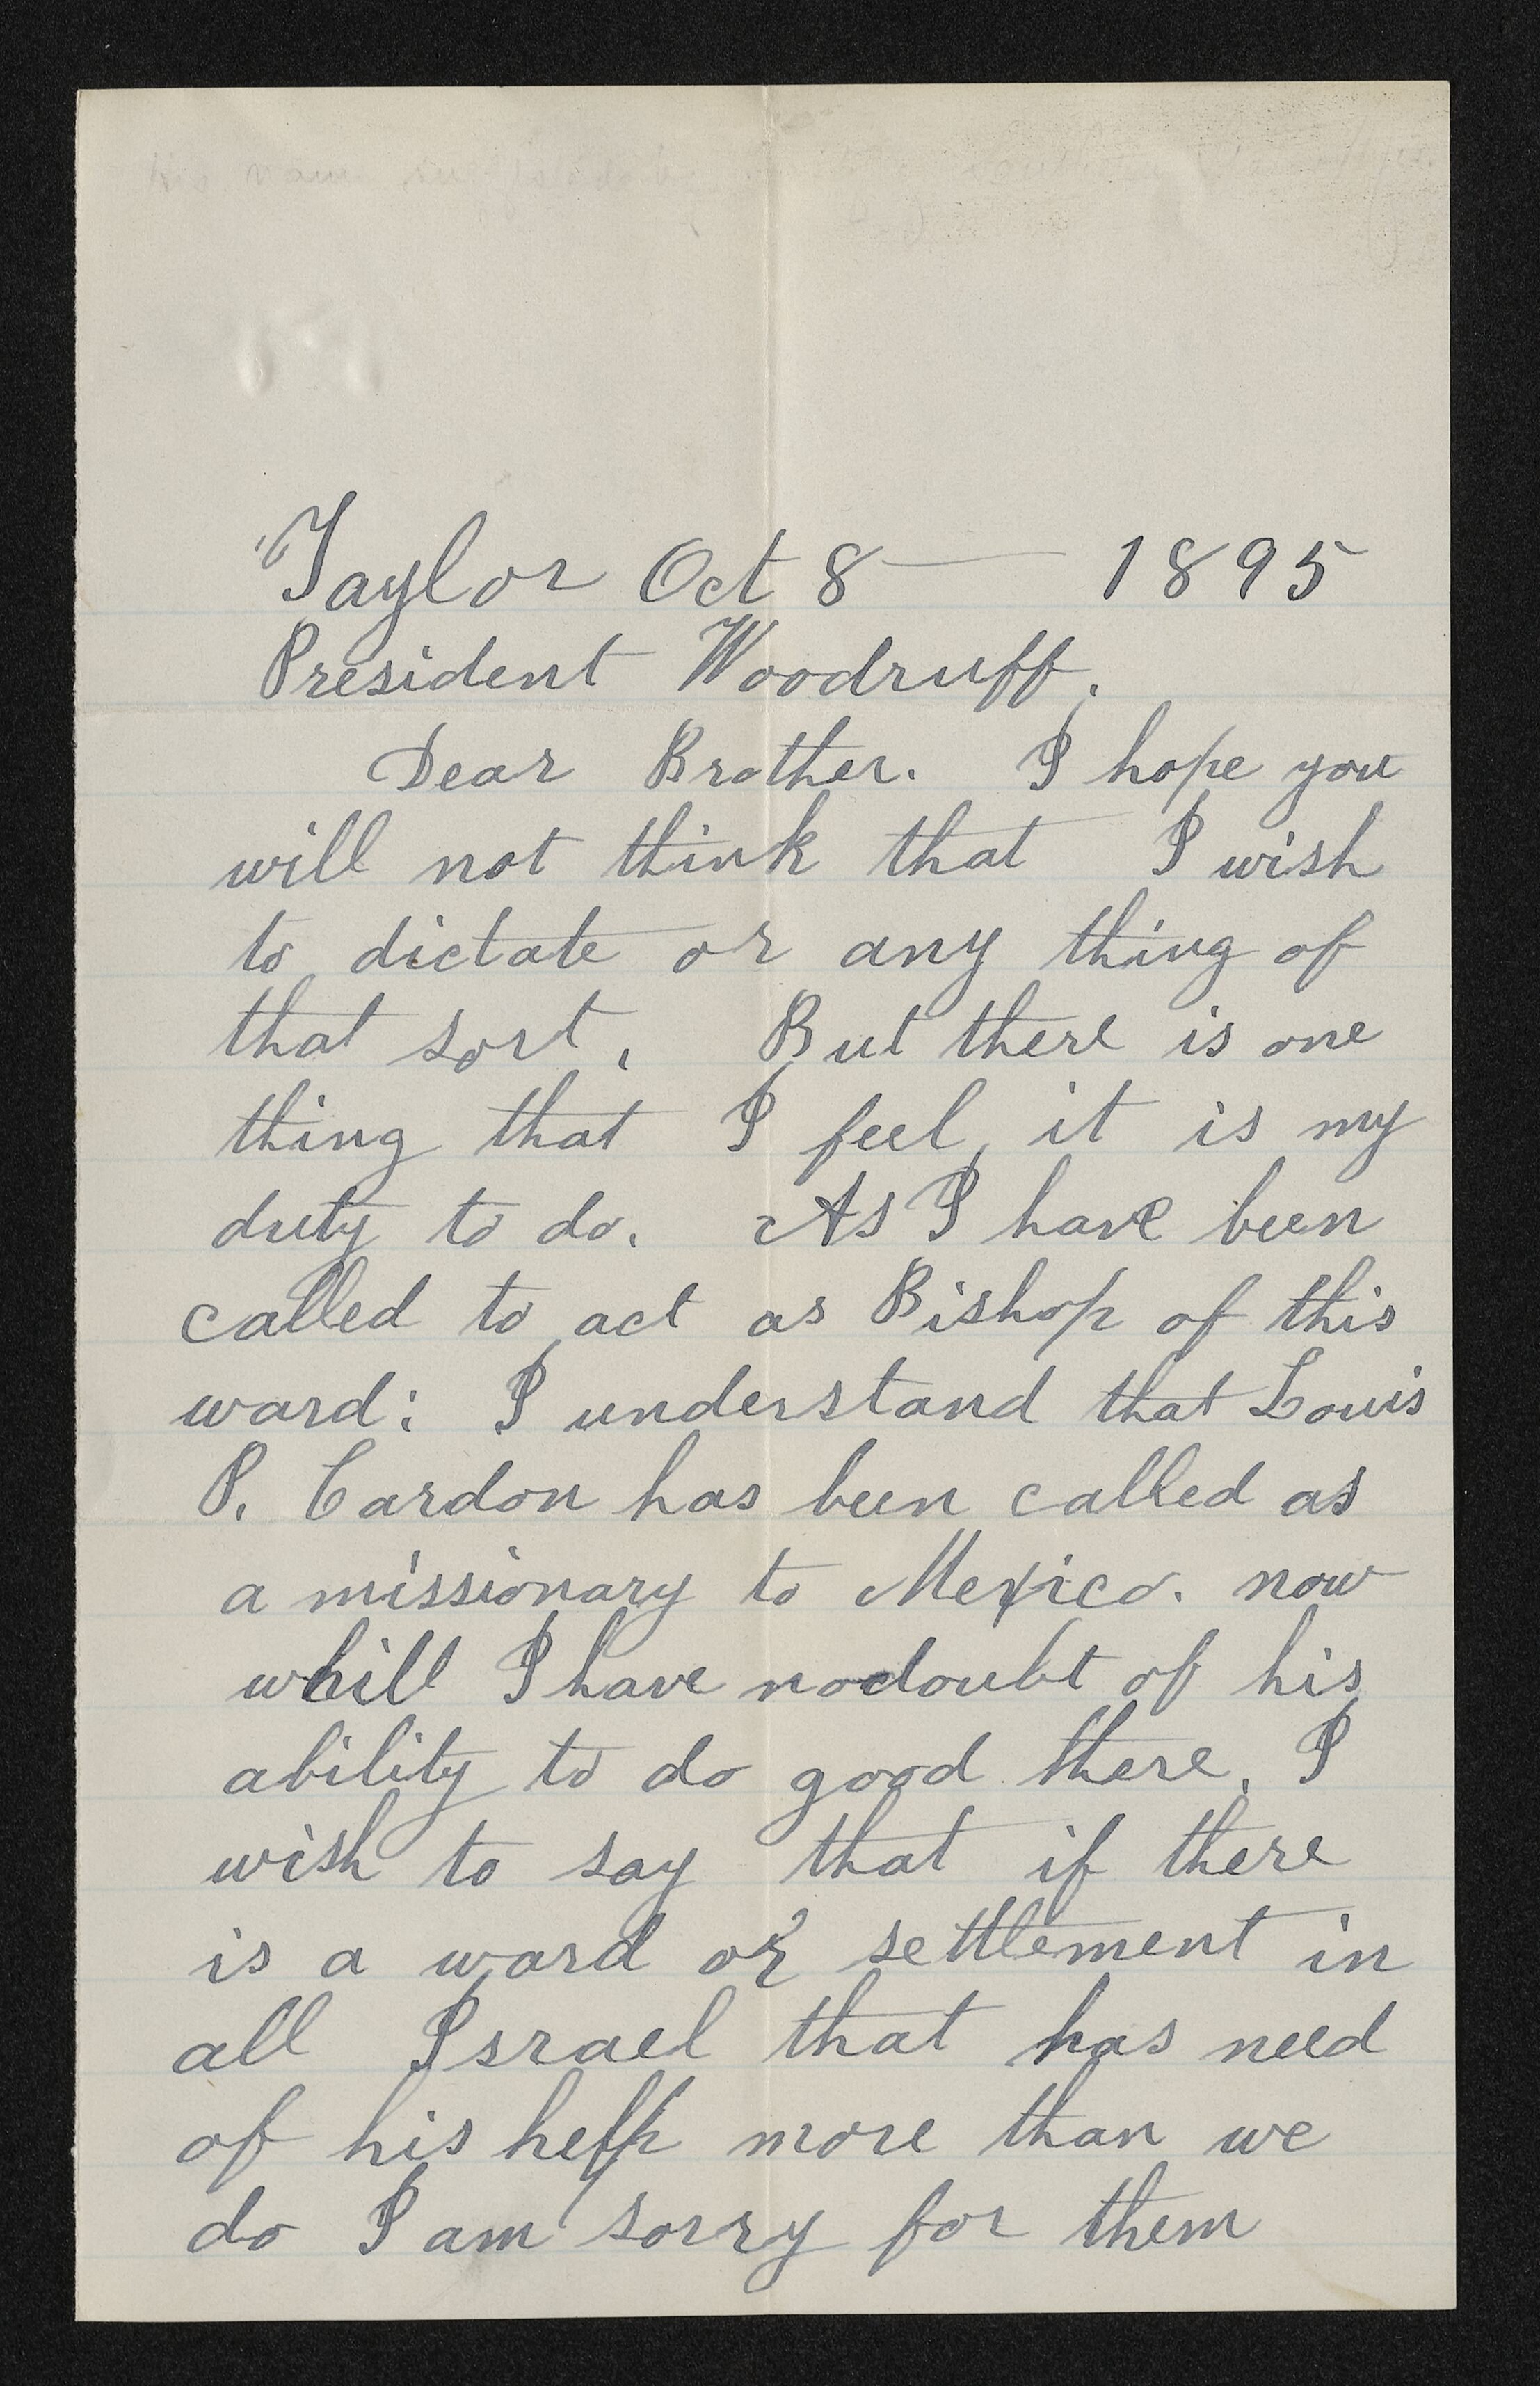 Taylor Oct 8 — 1895
President Woodruff.
Dear Brother. I hope you
will not think that I wish
to dictate or any thing of
that sort, But there is one
thing that I feel, it is my
duty to do. As I have been
called to act as Bishop of this
ward: I understand that Louis
P. Cardon has been called as
a missionary to Mexico. now
whill I have no doubt of his
ability to do good there, I
wish to say that if there
is a ward or settlement in
all Israel that has need
of his help more than we
do I am sorry for them